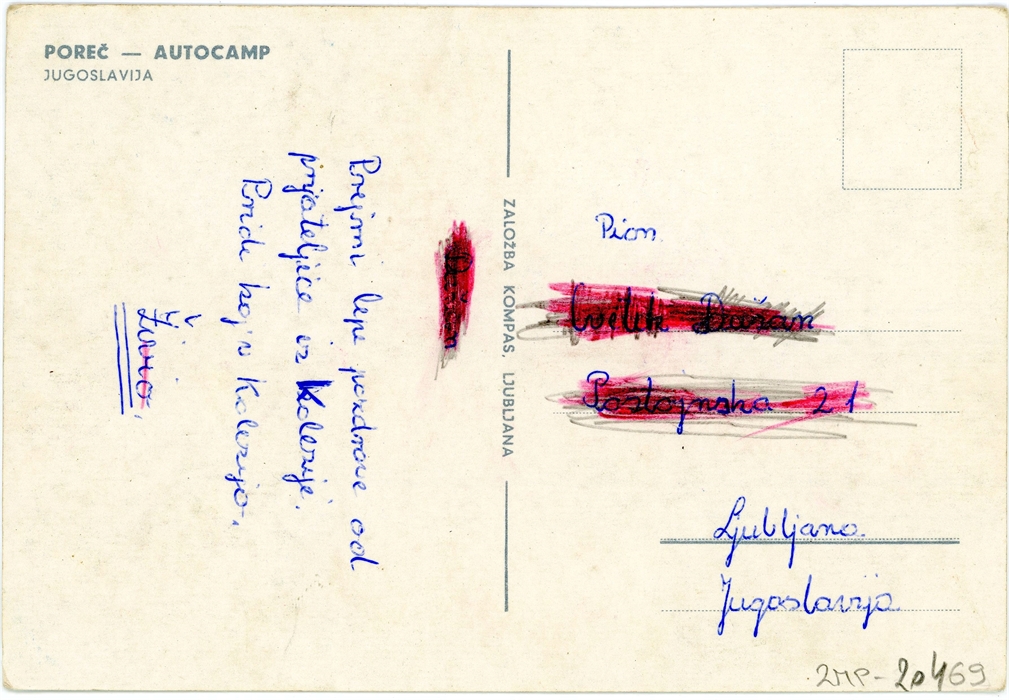 POREČ — AUTOCAMP
JUGOSLAVIJA
Prejmi lepe pozdrave od
prijateljice iz Kolezije.
Pridi kaj v Kolezijo.
ZALOŽBA KOMPAS, LJUBLJANA
Dušan
Postojnska 21
Ljubljana
Jugoslavija
2MP-20469